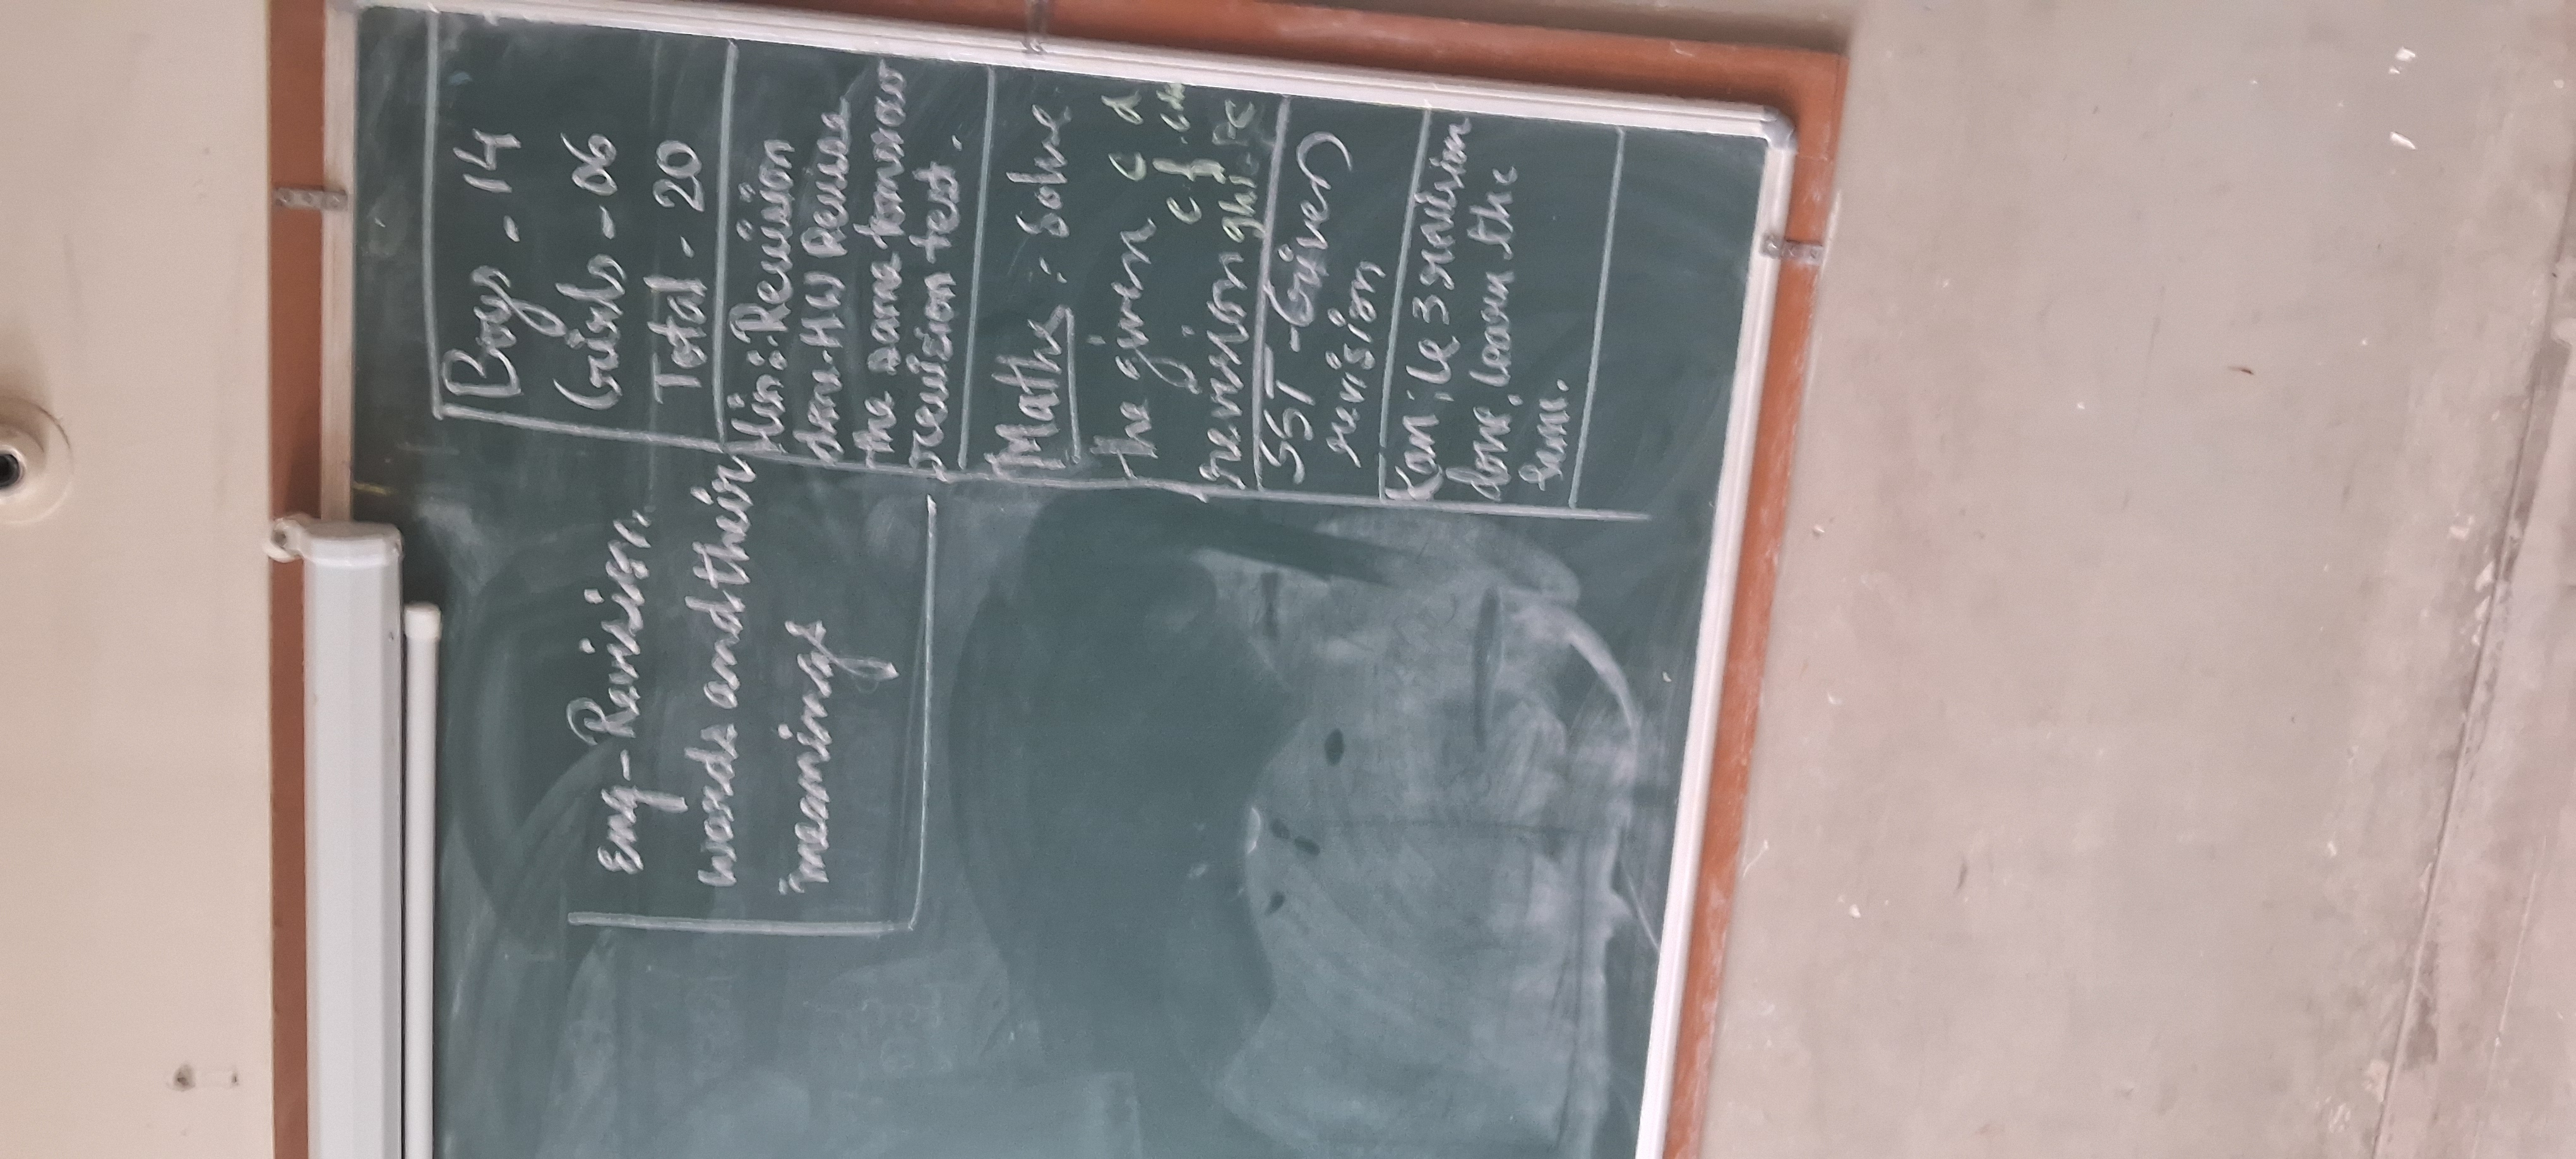 Boys - 14
Girls - 06
Total - 20
Hin: Revision
done. HW Revise
the same tomorrow
revision test.
Maths: Solve
the given
revision
SST - Given
revision
Kan: L3 revision
done, learn the
same.
Eng - Revision.
words and their
meanings